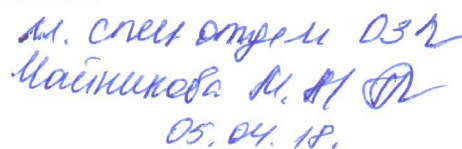 гл. спец отдела ОЗИ
Мойникова М.Н
05.04.18.